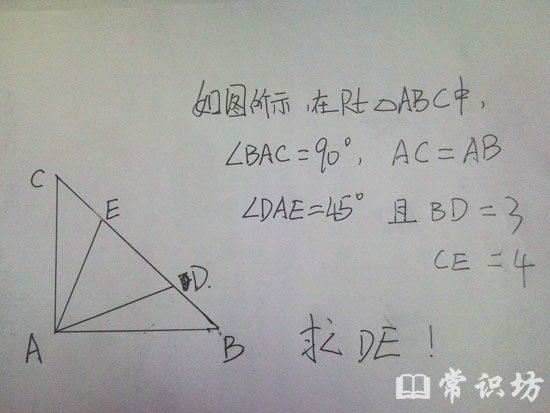 如图所示,在Rt△ABC中,
∠BAC=90°, AC=AB
∠DAE=45° 且 BD=3
CE=4
求 DE!
C
E
D.
A
B
常识坊